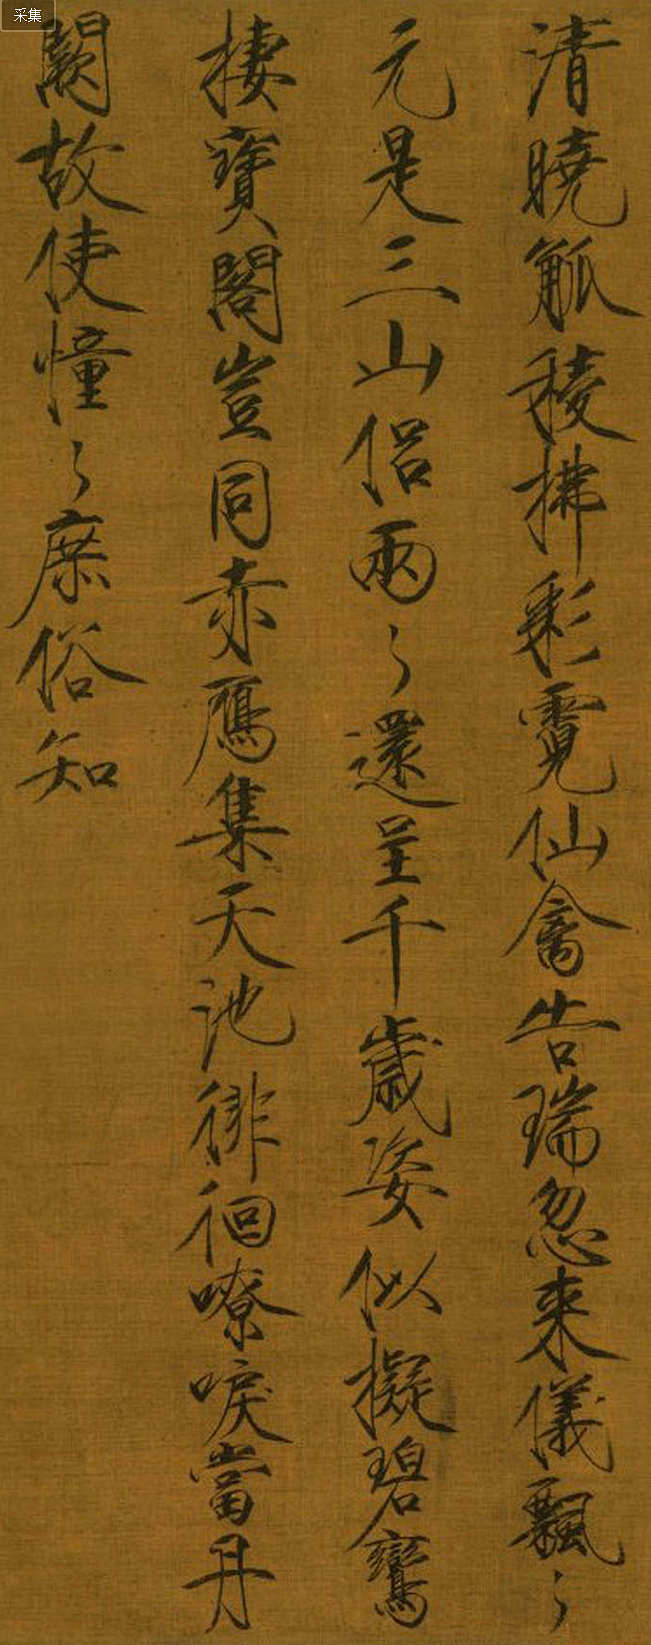 清曉觚稜拂彩霓仙禽告瑞忽来儀飄〻
元是三山侣兩〻還呈千歳姿似擬碧鸞
棲寳閣豈同赤鴈集天池徘徊嘹唳當丹
闕故使憧〻庶俗知
采集